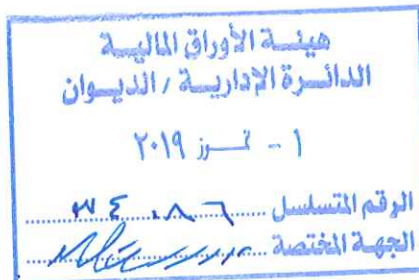 هيئة الأوراق المالية
الدائرة الإدارية / الديوان
١ - تموز ٢٠١٩
الرقم المتسلسل
الجهة المختصة